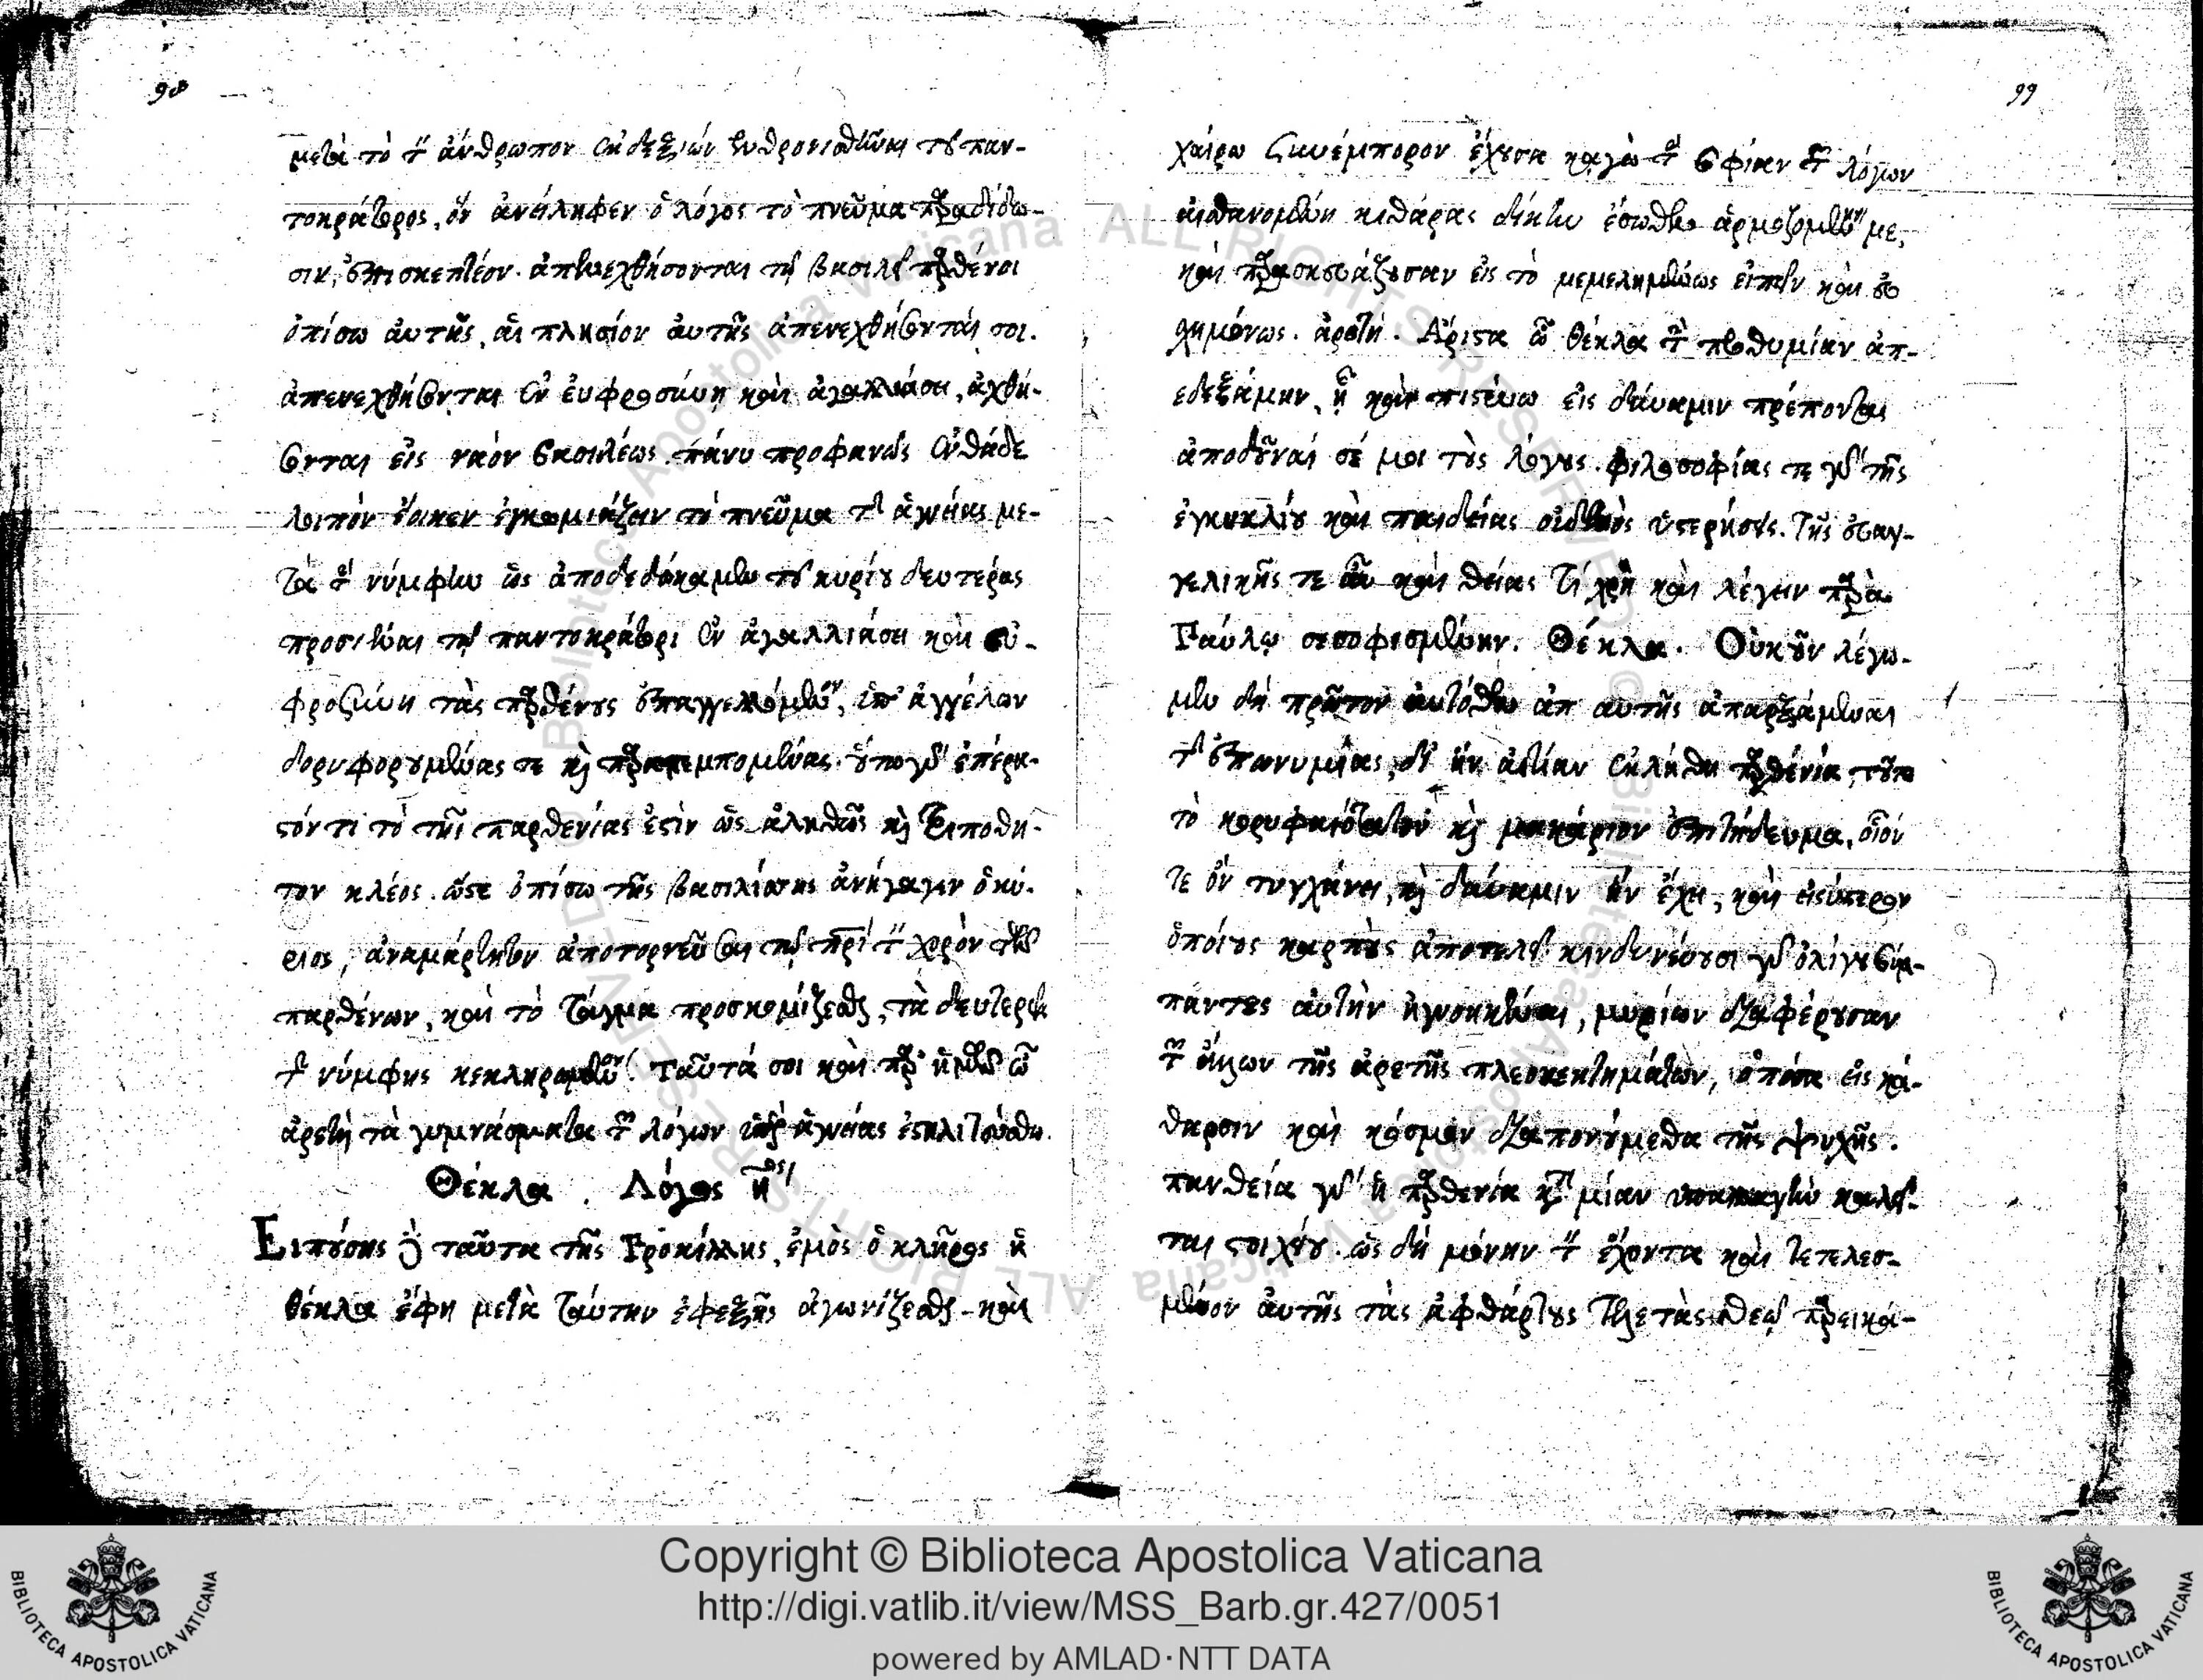 98
μετὰ τὸ τὸν ἄνθρωπον ἐκ δεξιῶν ἐνθρονισθῆναι τοῦ παν-
τοκράτορος, ὃν ἀνείληφεν ὁ λόγος τὸ πνεῦμα παραδίδω-
σιν, ἐπισκεπτέον. ἀπενεχθήσονται τῷ βασιλεῖ παρθένοι
ὀπίσω αὐτῆς, αἱ πλησίον αὐτῆς ἀπενεχθήσονταί σοι.
ἀπενεχθήσονται ἐν εὐφροσύνῃ καὶ ἀγαλλιάσει, ἀχθή-
σονται εἰς ναὸν βασιλέως. πάνυ προφανῶς ἐνθάδε
λοιπὸν ἔοικεν ἐγκωμιάζειν τὸ πνεῦμα τῆς ἁγνείας με-
τὰ τὴν νύμφην ὡς ἀποδεδώκαμεν τοῦ κυρίου δευτέρας
προσιέναι τῷ παντοκράτορι ἐν ἀγαλλιάσει καὶ εὐ-
φροσύνῃ τὰς παρθένους ἐπαγγελλόμενον, ὑπ' ἀγγέλων
δορυφορουμένας τε καὶ παραπεμπομένας. οὕτω γὰρ ὑπέρα-
στόν τι τὸ τῆς παρθενίας ἐστὶν ὡς ἀληθῶς καὶ τριπόθη-
τον κλέος. ὥστε ὀπίσω τῆς βασιλίσσης ἀνήγαγεν ὁ κύ-
ριος, ἀναμάρτητον ἀποτορνεῦσαι τῷ πατρὶ τὸν χορὸν τῶν
παρθένων, καὶ τὸ τάγμα προσκομίζεσθαι, τὰ δευτερεῖα
τῆς νύμφης κεκληρωμένον. Ταῦτά σοι καὶ παρ' ἡμῶν ὦ
ἀρετὴ τὰ γυμνάσματα τῶν λόγων ὑπὲρ ἁγνείας ἐσκλιτεύσθω.
Θέκλα. Λόγος η<sup>ος</sup>
Εἰπούσης δὲ ταῦτα τῆς Προκίλλης, ἐμὸς ὁ κλῆρος ἡ
θέκλα ἔφη μετὰ ταύτην ἐφεξῆς ἀγωνίζεσθαι καὶ
99
χαίρω συνέμπορον ἔχουσα κἀγὼ τὴν σοφίαν τῶν λόγων
αἰσθανομένη κιθάρας δίκην ἔσωθεν ἁρμοζομένην με,
καὶ παρασκευάζουσαν εἰς τὸ μεμελημένως εἰπεῖν καὶ εὐ
σχημόνως. ἀρετή. Ἄριστα ὦ Θέκλα τὴν προθυμίαν ἀπ-
εδεξάμην, ᾗ καὶ πιστεύω εἰς δύναμιν πρέποντας
ἀποδοῦναί σέ μοι τοὺς λόγους. φιλοσοφίας τε γὰρ τῆς
ἐγκυκλίου καὶ παιδείας οὐδενὸς ὑστερήσεις. Τῆς εὐαγ-
γελικῆς τε αὖ καὶ θείας τί χρὴ καὶ λέγειν παρὰ
Παύλῳ σεσοφισμένην. Θέκλα. Οὐκοῦν λέγω-
μεν δὴ πρῶτον αὐτόθεν ἀπ αὐτῆς ἀπαρξάμεναι
τῆς ἐπωνυμίας, δι' ἣν αἰτίαν ἐκλήθη παρθενία, τοῦτο
τὸ κορυφαιότατον καὶ μακάριον ἐπιτήδευμα, οἷόν
τε ὂν τυγχάνει, καὶ δύναμιν ἣν ἔχει, καὶ εἰσύστερον
ὁποίους καρποὺς ἀποτελεῖ κινδυνεύουσι γὰρ ὀλίγου σύμ-
παντες αὐτὴν ἠγνοηκέναι, μυρίων διαφέρουσαν
τῶν ἄλλων τῆς ἀρετῆς πλεονεκτημάτων, ὁπόσα εἰς κά-
θαρσιν καὶ κόσμον διαπονούμεθα τῆς ψυχῆς.
πανθεία γὰρ ἡ παρθενία κατὰ μίαν ὑπαλλαγὴν καλεῖ-
ται στοιχείου. ὡς δὴ μόνην τὸν ἔχοντα καὶ τετελεσ-
μένον αὐτῆς τὰς ἀφθάρτους τελετὰς θεῷ παρεικά-
Copyright © Biblioteca Apostolica Vaticana
http://digi.vatlib.it/view/MSS_Barb.gr.427/0051
powered by AMLAD·NTT DATA
BIBLIOTECA APOSTOLICA VATICANA
BIBLIOTECA APOSTOLICA VATICANA